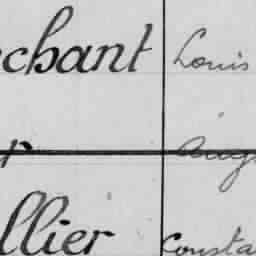 chant Louis
r Aug
llier Consta